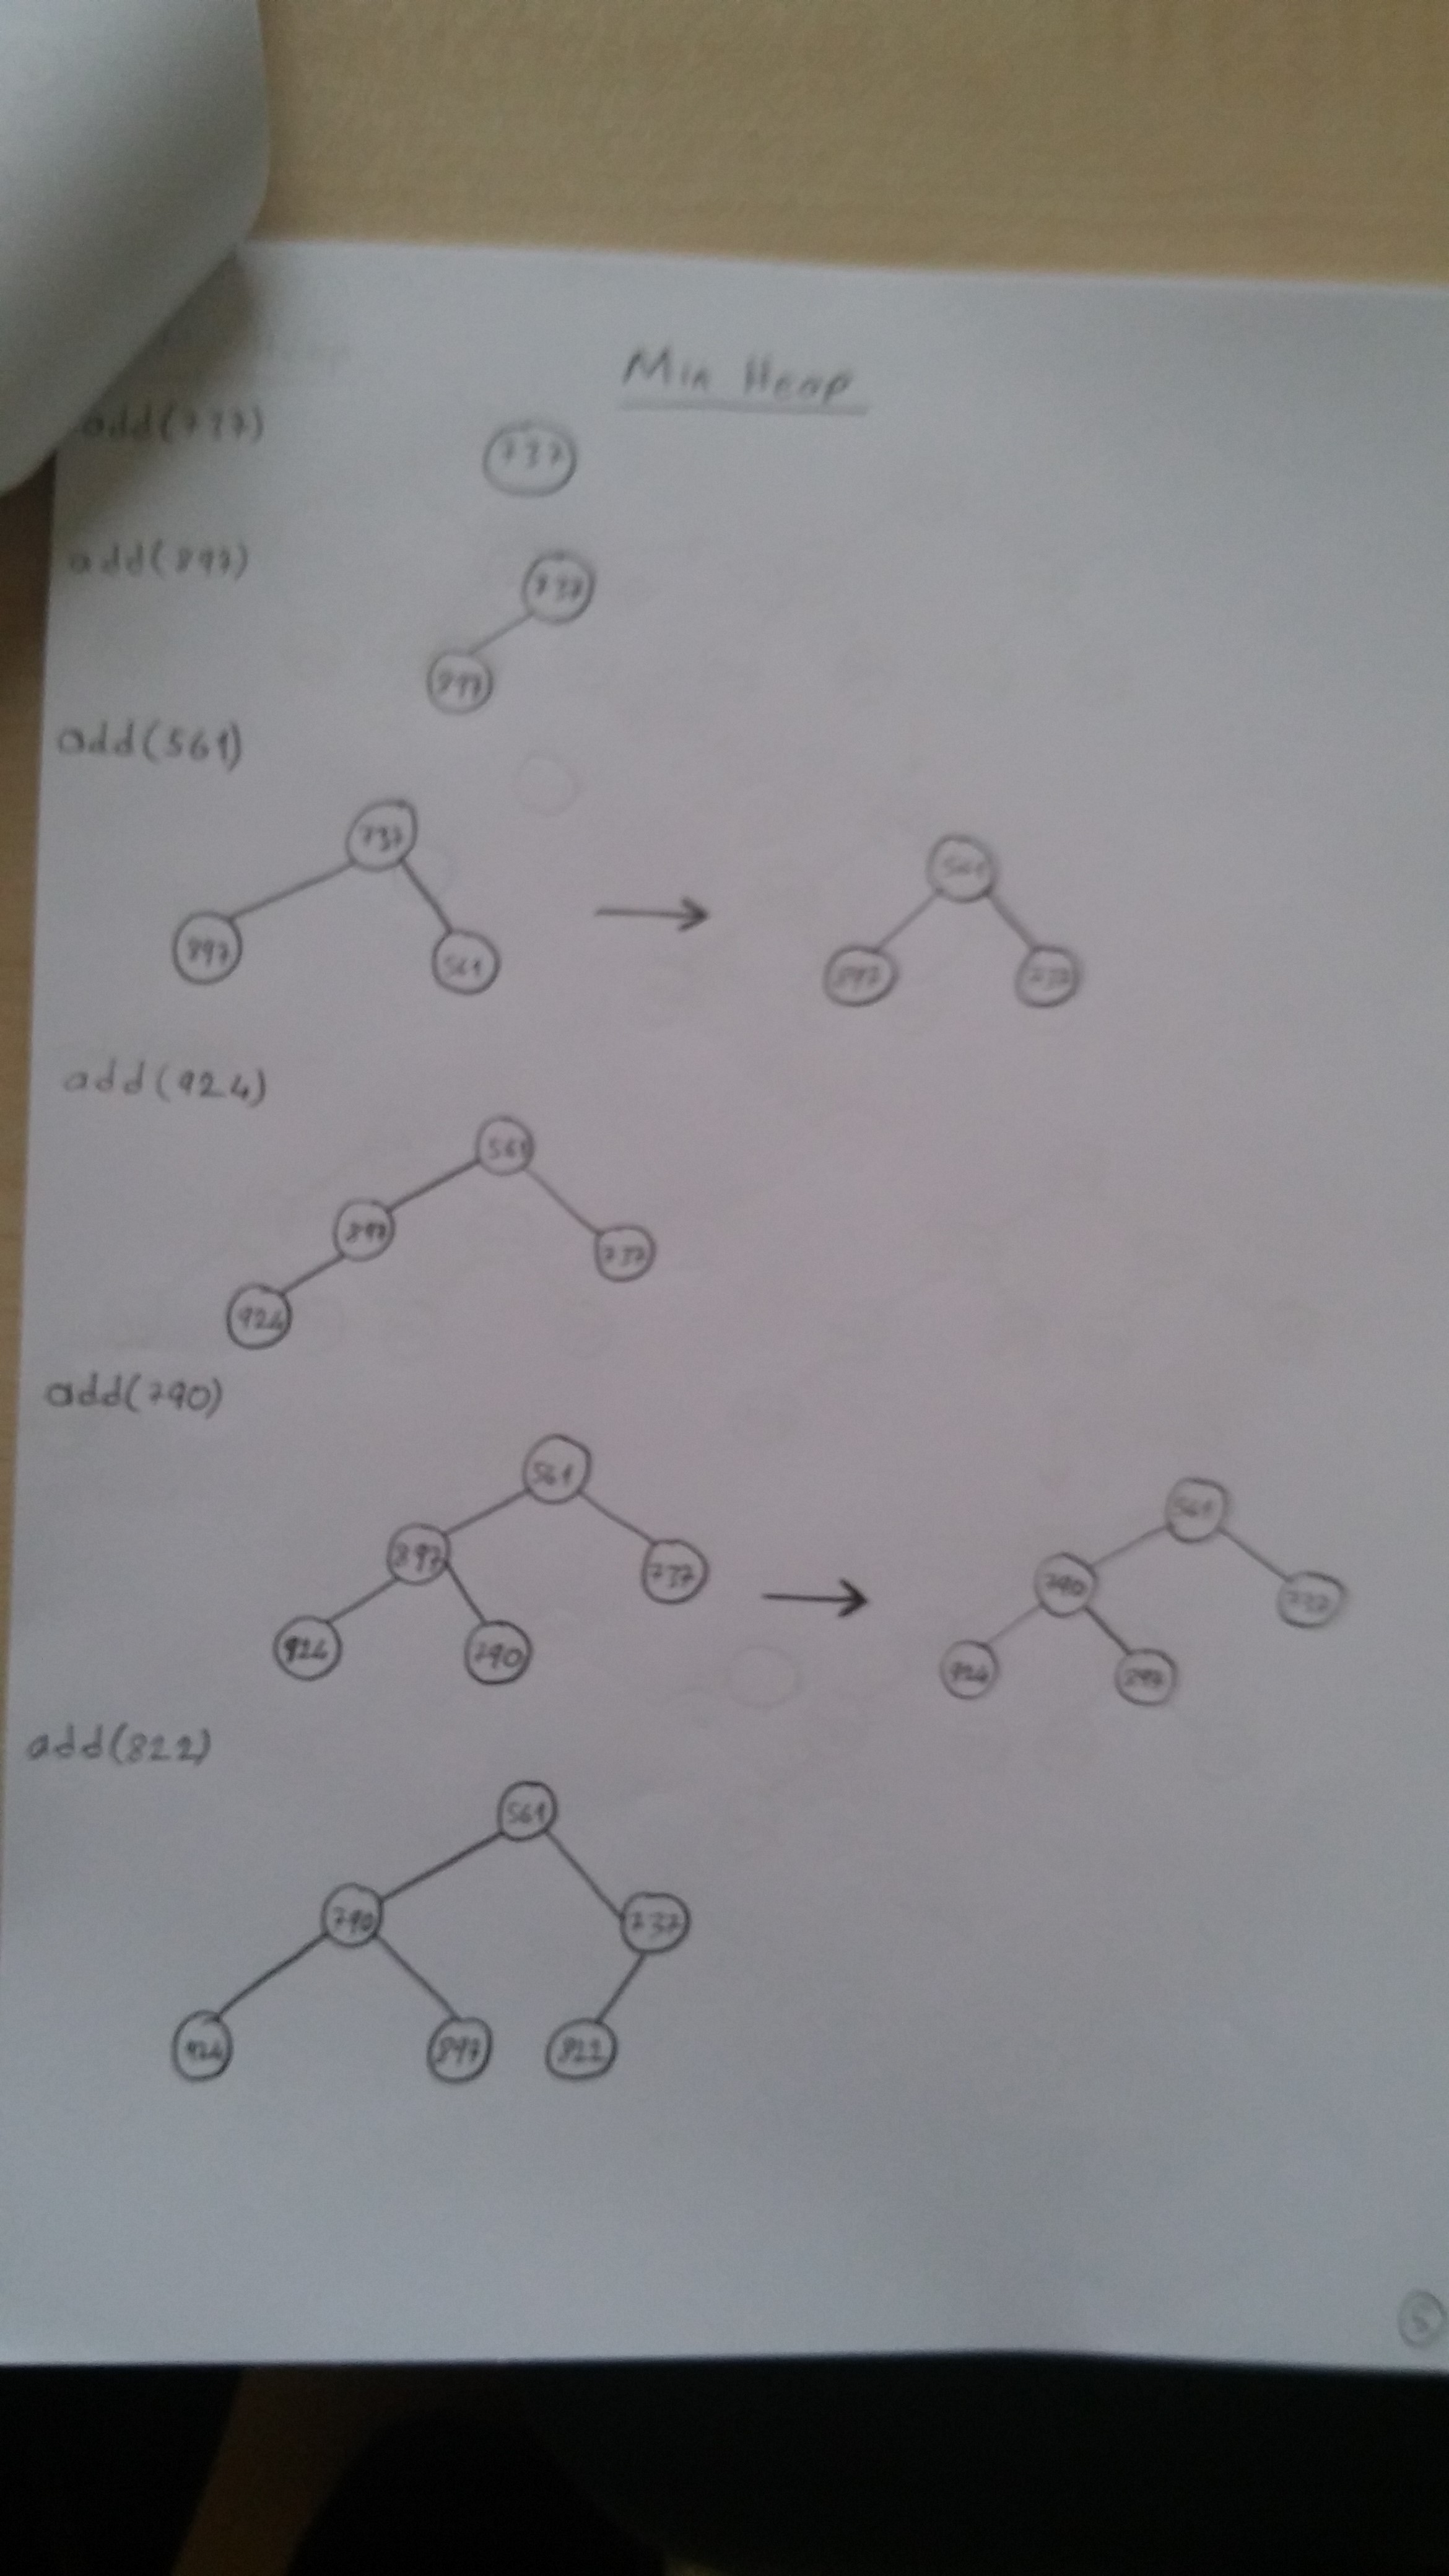 Min Heap
add(737)
737
add(897)
737
897
add(561)
737
897 561
561
897 737
add(924)
561
897 737
924
add(790)
561
897 737
924 790
561
790 737
924 897
add(822)
561
790 737
924 897 822
5